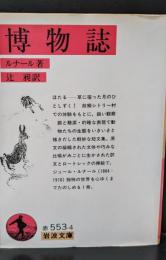 博物誌
ルナール著
辻 昶訳
ほたる――草に宿った月のひ
としずく! 故郷シトリー村
での体験をもとに,鋭い観察
眼と簡潔・的確な表現で動
物たちの生態をいきいきと
描きだした軽妙な短文集。
文の凝縮された文体や巧みな
比喩がみごとに生かされた訳
文とロートレックの挿絵で,
ジュール・ルナール(1864-
1910)独特の世界を心ゆくま
でたのしめる1冊。
赤 553-4
岩波文庫